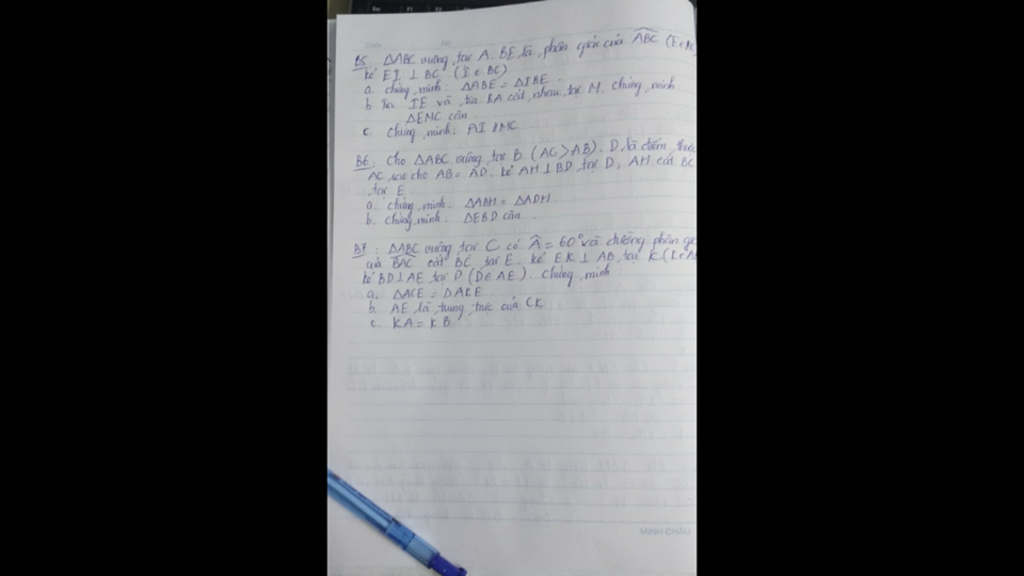 Date No
B5 ΔABC vuông tại A. BE là phân giác của ABC (E∈AC
kẻ EI ⊥ BC (I ∈ BC)
a. chứng minh: ΔABE = ΔIBE.
b tia IE và tia BA cắt nhau tại M. chứng minh
ΔEMC cân
c. chứng minh: AI // MC
B6: Cho ΔABC vuông tại B (AC > AB). D là điểm thuộc
AC sao cho AB = AD. kẻ AH ⊥ BD tại D, AH cắt BC
tại E
a. chứng minh: ΔABH = ΔADH
b. chứng minh: ΔEBD cân.
B7: ΔABC vuông tại C có Â = 60° và đường phân gi
của BAC cắt BC tại E. kẻ EK ⊥ AB tại K (K∈AB
kẻ BD ⊥ AE tại D (D∈ AE). Chứng minh:
a. ΔACE = ΔAKE
b. AE là trung trực của CK
c. KA = KB
MINH CHÂU